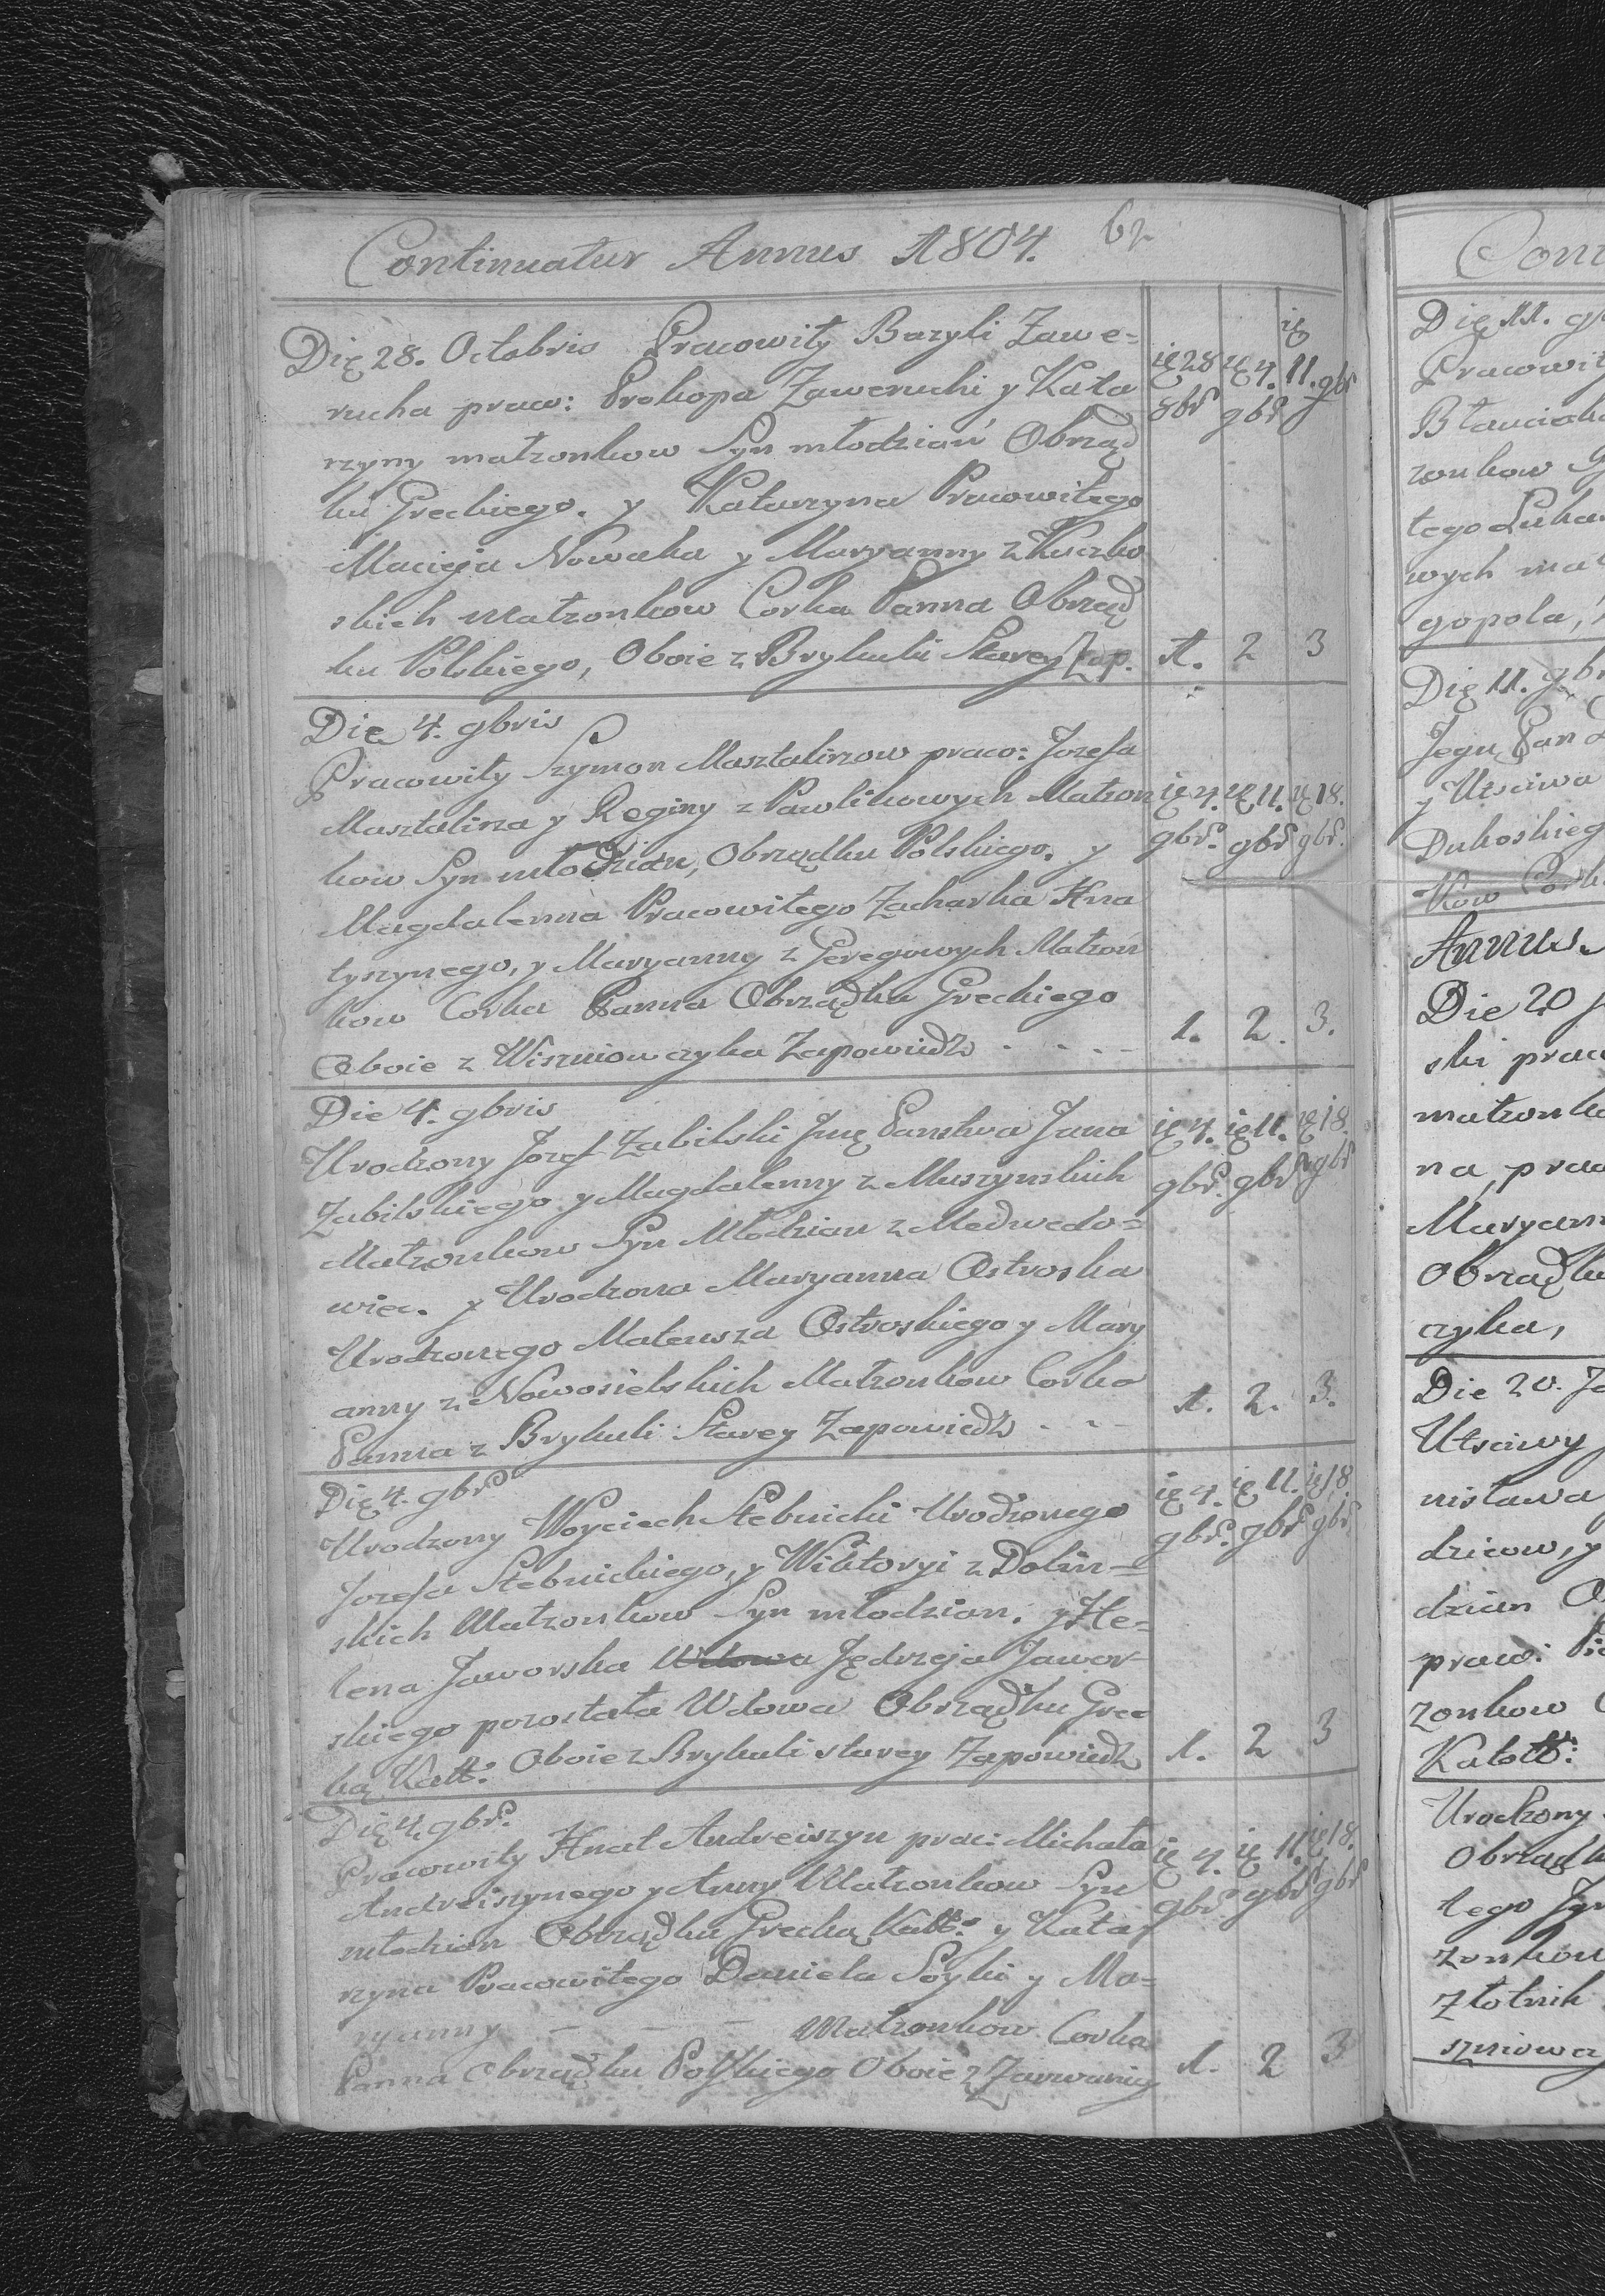 Continuatur Annus 1804. 62
Dię 28. Octobris Pracowity Bazyli Zawe=
rucha praw: Prokopa Zaweruchi y Kata
rzyny matzonkow Syn młodzian Obrząd
ku Greckiego. y Katarzyna Pracowitego
Macieja Nowaka y Maryanny z
skich Matzonkow Corka Panna Obrząd
ku Polskiego, Oboie z Brykuli Starey Zap.
ię 28 ię 4. ię 11. gbr
8br gbr
1. 2 3
Die 4. gbris
Pracowity Szymon Masztalirzow praco: Jozefa
Masztalirza y Reginy z Pawlikowych Matzon
kow Syn młodzian, Obrządku Polskiego. y
Magdalenna Pracowitego Zacharka Hna
tyszynego, y Maryanny z Geregowych Matzon
kow Corka Panna Obrządku Greckiego
Oboie z Wiszniowczyka Zapowiedz
ię 4. ię 11. ię 18.
gbr. gbr gbr.
1. 2. 3.
Die 4. gbris
Urodzony Jozef Zabilski Jmę Panstwa Jana
Zabilskiego y Magdalenny z Muszynskich
Matzonkow Syn Młodzian z Medwedo=
wiec. y Urodzona Maryanna Ostroska
Urodzonego Mateusza Ostroskiego y Mary
anny z Nowosielskich Matzonkow Corka
Panna z Brykuli Starey Zapowiedz
ię 4. ię 11. ię 18.
gbr. gbr gbr
1. 2. 3.
Dię 4. gbr
Urodzony Woyciech Stebnicki Urodzonego
Jozefa Stebnickiego, y Wiktoryi z Dolin=
skich Matzonkow Syn młodzian. y He=
lena Jaworska Wdowa Jędrzeja Jawor
skiego pozostała Wdowa Obrządku Grec
ką Katt: Oboie z Brykuli starey Zapowiedz
ię 4. ię 11. ię 18.
gbr. gbr gbr.
1. 2 3
Dię 4. gbr.
Pracowity Hnat Andreiszyn prac: Michała
Andreiszynego y Anny Matzonkow Syn
młodzian Obrządku Grecką Katt: y Kata
rzyna Pracowitego Daniela Soyki y Ma=
ryanny - - - Matzonkow Corka
Panna Obrządku Polskiego Oboie z Zarwanicy
ię 4. ię 11. ię 18.
gbr gbr gbr
1. 2 3
Dię 11.
Pracowity
tego
wych
gopola,
Dię 11. gbr
Jegu Pan
y Utsciwa
Dukoskieg
kow Cork
Annus
Die 20
ski prac
matzonko
na, prac
Maryann
Obrządku
czyka,
Die 20. Ja
Utsciwy
nisława
dzicow, y
dzian O
praw:
zonkow
Katott:
Urodzony
Obrządk
tego
zonkow
Złotnik